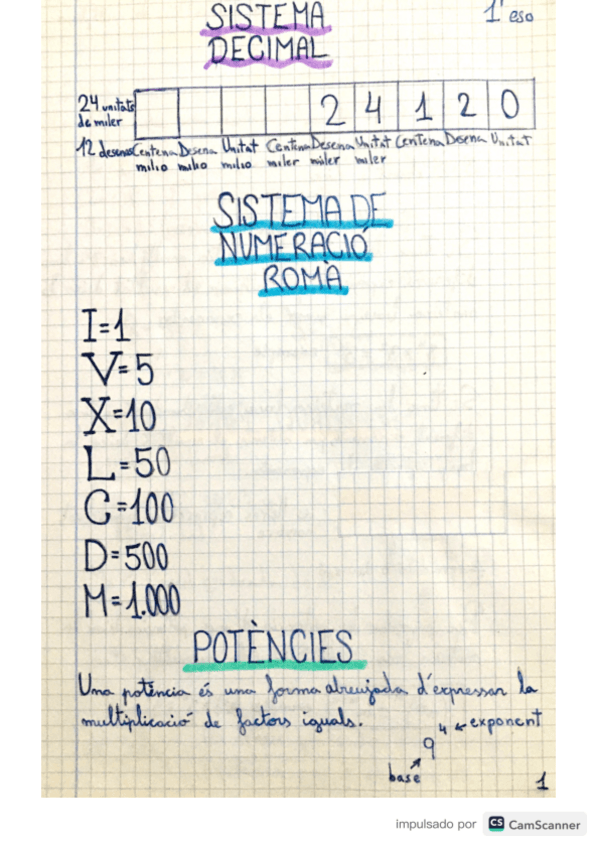 SISTEMA
DECIMAL
1º eso
24 unitats
de miler
2 4 1 2 0
12 desenes Centena Desena Unitat Centena Desena Unitat Centena Desena Unitat
milio milio milio miler miler miler
SISTEMA DE
NUMERACIÓ
ROMÀ
I=1
V=5
X=10
L=50
C=100
D=500
M=1.000
POTÈNCIES
Una potència és una forma abreujada d'expressar la
multiplicació de factors iguals.
4 ← exponent
9
base
1
impulsado por CS CamScanner